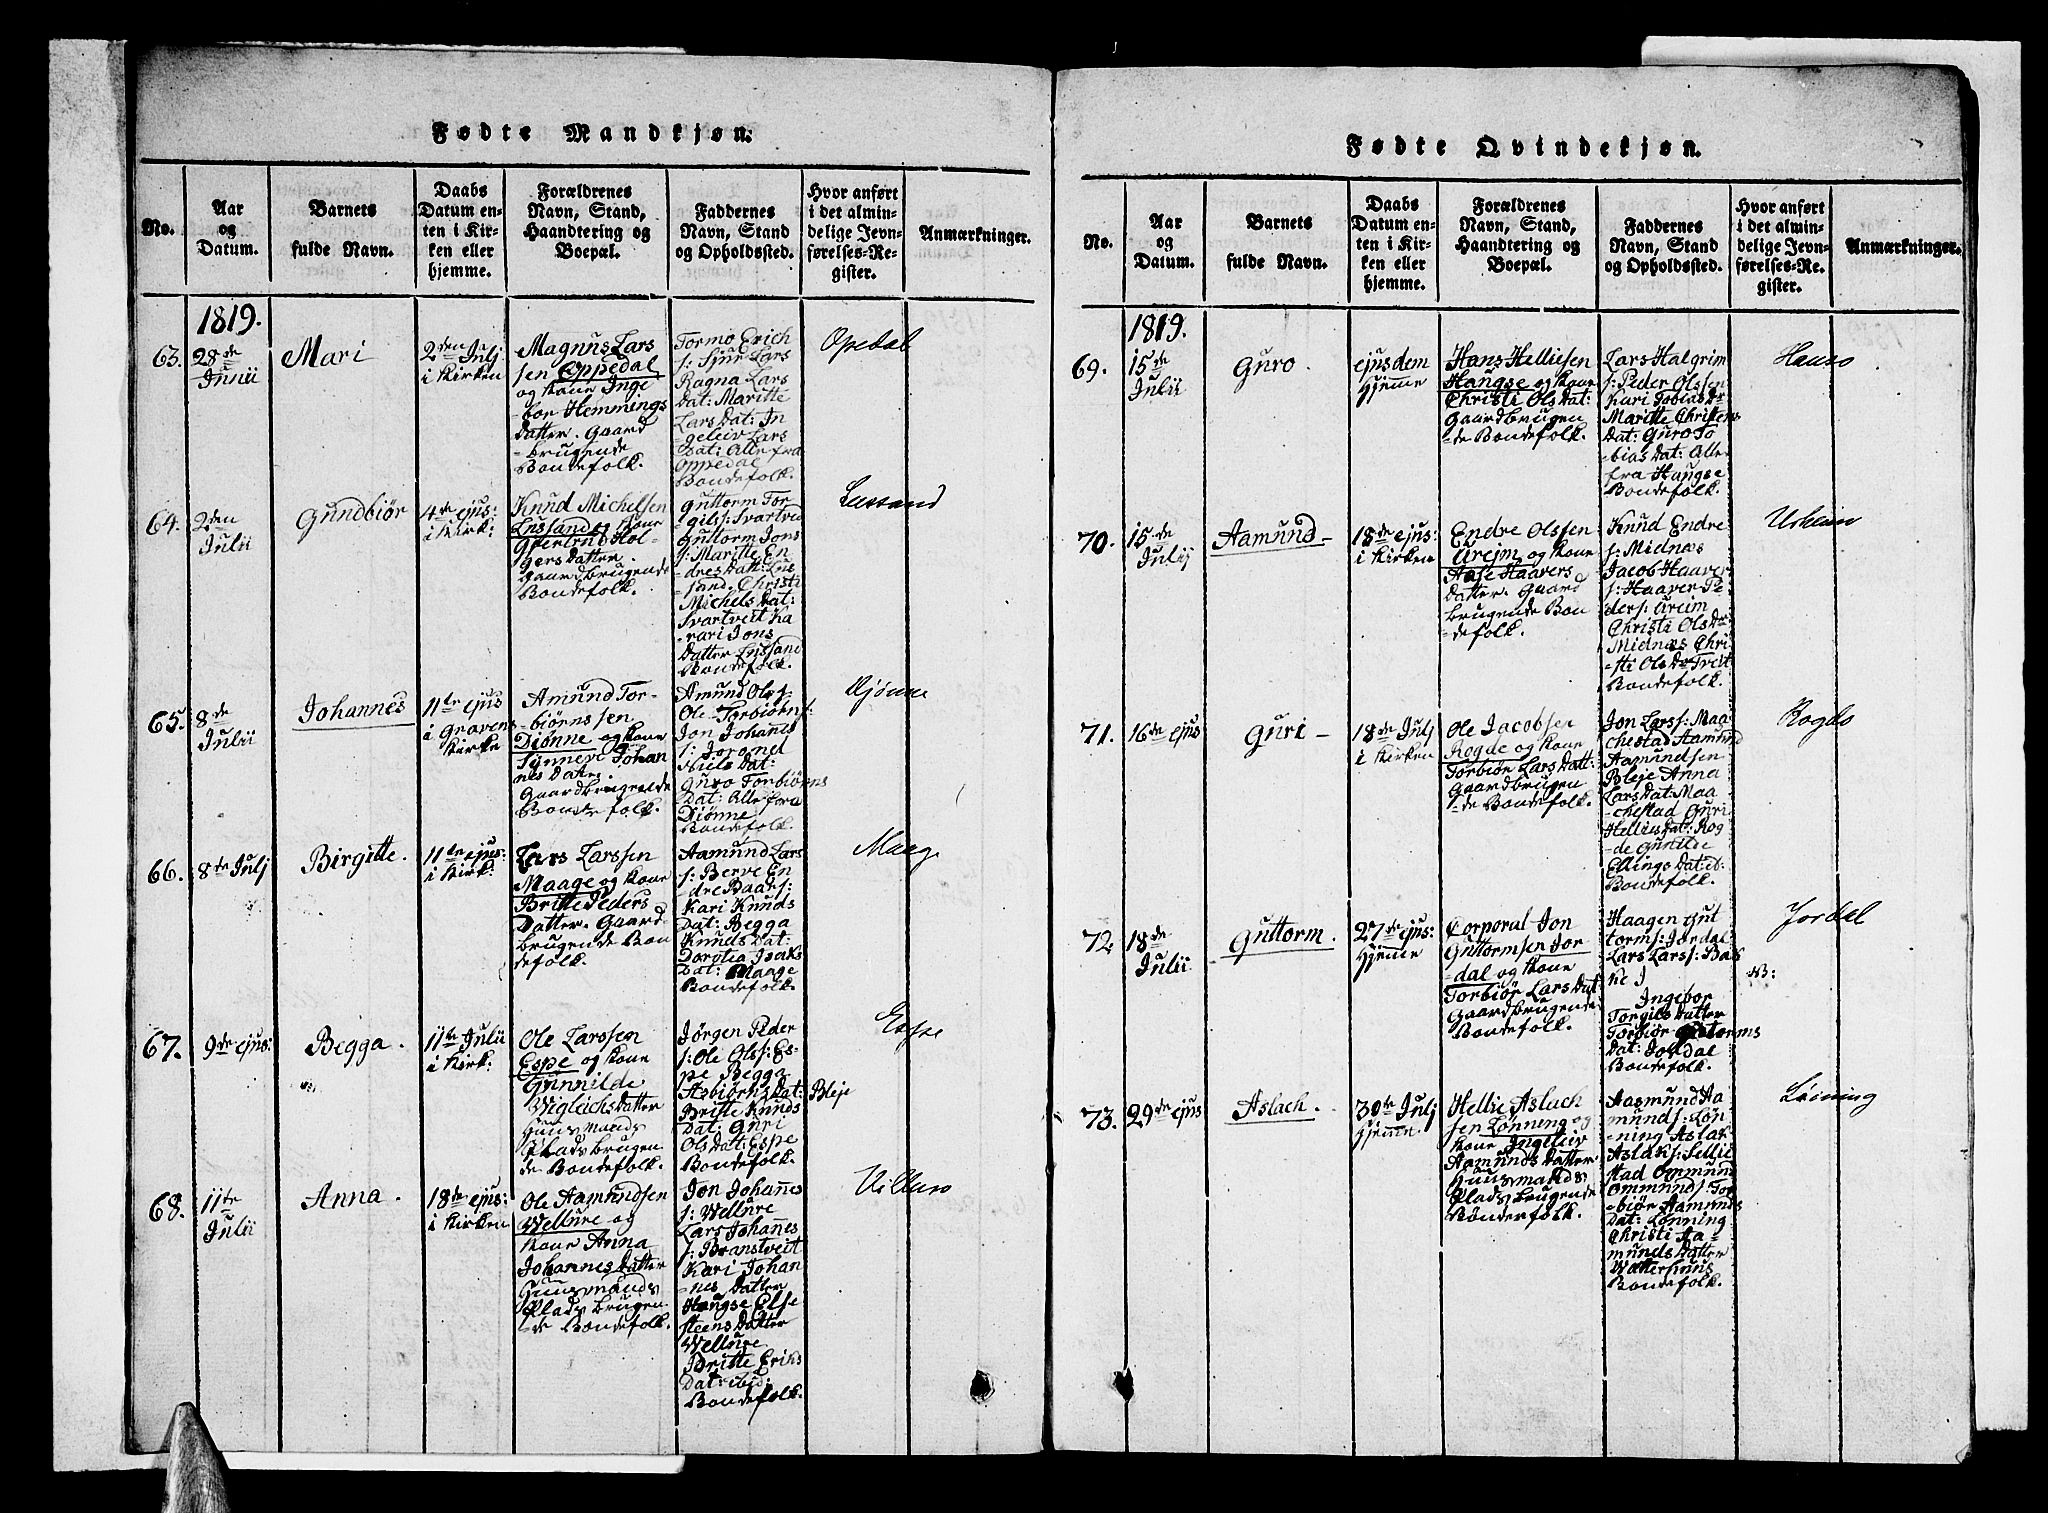 Fødte Mandkjøn.
No.
Aar
og
Datum.
Barnets
fulde Navn.
Daabs
Datum en-
ten i Kir-
ken eller
hjemme.
Forældrenes
Navn, Stand,
Haandtering og
Boepæl.
Faddernes
Navn, Stand
og Opholdssted.
Hvor anført
i det almin-
delige Jevn-
førelses-Re-
gister.
Anmærkninger.
1819.
63.
28de
Junii
Mari
2den Julj
i Kirken
Magnus Lars
sen Oppedal
og Kone Inge
-bor Hemmings
Datter. Gaard
-brugende
Bondefolk.
Tormo Erich
s: Sjur Lars
Ragna Lars
Dat: Maritte
Lars Dat: In
geleiv Lars
Dat: Alle fra
Oppedal
Bondefolk.
Opedal
64.
2den
Julii
Gundbiör
4de ejus:
i Kirk:
Knud Michelsen
Lussand og Kone
Giertrud Hol-
gers Datter.
Gaardbrugende
Bondefolk.
Guttorm Tor
gilss: Svartved
Guttorm Jons
s: Maritte En
dres Datt: Lus
sand. Christi
Michels Dat:
Svartveit Ka
-rari Jons
Datter Lussand
Bondefolk.
Lussand
65.
8de
Julii
Johannes
11te ejus
i Gravens
Kirke
Amund Tor-
-biörnssen
Diönne og Kone
Synneve Johan
nes Datr.
Gaardbrugende
Bondefolk.
Amund Ols s:
Ole Torbiörns:
Jon Johannes
s: Joronel
Niels Dat:
Guro Torbiörns
Dat: Alle fra
Diönne
Bondefolk.
Djönne
66.
8de Julj
Birgitte.
11te ejus:
i Kirk:
Lars Larssen
Maage og Kone
Britte Peders
Datter. Gaard-
brugende Bon
defolk.
Aamund Lars
s: Berve En
dre Baars:
Kari Knuds
Dat: Begga
Knuds Dat:
Dorotia Isaks
Dat: Maage
Bondefolk.
Maage
67.
9de ejus:
Begga.
11te Julii
i Kirk:
Ole Larssen
Espe og Kone
Gunnilde
Wiglichs Datter
Huusmands
Plads brugen
de Bondefolk.
Jörgen Peder
s: Ole Olss: Es-
pe Begga
Asbiörns Dat: Bleje
Britte Knuds
Dat: Guri
Ols Dat: Espe
Bondefolk.
Espe
68.
11te
Julii
Anna.
18de ejus:
i Kirken
Ole Aamundsen
Wellure og
Kone Anna
Johannes Datter
Huusmands
Plads brugen
-de Bondefolk.
Jon Johannes
s: Wellure
Lars Johannes
s: Branstveit
Kari Johan
-nes Datter
Haugse Else
steens Datter
Wellure
Britte Eriks
Dat: ibid:
Bondefolk.
Villuro
Fødte Qvindekjøn.
No.
Aar
og
Datum.
Barnets
fulde Navn.
Daabs
Datum en-
ten i Kir-
ken eller
hjemme.
Forældrenes
Navn, Stand,
Haandtering og
Boepæl.
Faddernes
Navn, Stand
og Opholdssted.
Hvor anført
i det almin-
delige Jevn-
førelses-Re-
gister.
Anmærkninger.
1819.
69.
15de
Julii
Guro.
ejusdem
Hjemme
Hans Helliesen
Haugse og Kone
Christi Ols Dat:
Gaardbrugen
-de Bondefolk.
Lars Halgrim
s: Peder Olssen
Kari Tobias Dr
Maritte Christens
Dat: Guro To
bias Dat: Alle
fra Haugse
Bondefolk.
Hauso
70.
15de
Julij
Aamund
18de ejus:
i Kirken
Endre Olssen
Ureim og Kone
Aase Haavers
Datter. Gaard
brugende Bon
-defolk.
Knud Endre
s: Midnæs
Jacob Haaver
s: Haaver Pe
ders: Ureim
Christi Ols Dr
Midnæs Chri
-sti Ols Dr Treit
Bondefolk.
Urheim
71.
16de ejus
Guri
18de Julj
i Kirken
Ole Jacobsen
Rogde og Kone
Torbiör Lars Datt:
Gaardbrugen
-de Bondefolk.
Jon Larss: Maa
chestad Aamund
Aamundsen
Bleje Anna
Lars Dat: Maa
chestad Guri
Hellies dat: Rog
de Gunilde
Ellings Dat: ib:
Bondefolk.
Rogdo
72.
18de
Julii
Guttorm.
27de ejus:
Hjemme
Corporal Jon
Guttormsen Jor
-dal og Kone
Torbiör Lars Dat
Gaardbrugende
Bondefolk.
Haagen Gut
torms: Jordal
Lars Larss: Bak
ke
Ingebor
Torgils Datter
Torbiör Guttorms
Dat: Jordal
Bondefolk.
Jordal
73.
29de ejus
Aslach.
30te Julj
Hjemme.
Hellie Aslach
sen Lønning og
Kone Ingeleiv
Aamunds Datter
Huusmands
Plads brugende
Bönderfolk.
Aasmund Aa
munds: Løn
-ning Aslak
Aslaks: Sellie
stad Ommund
Ommunds: Tor
-biør Aamunds
Dat: Lønning
Christi Aa-
munds Datter
Wattersuuis
Bondefolk.
Löining